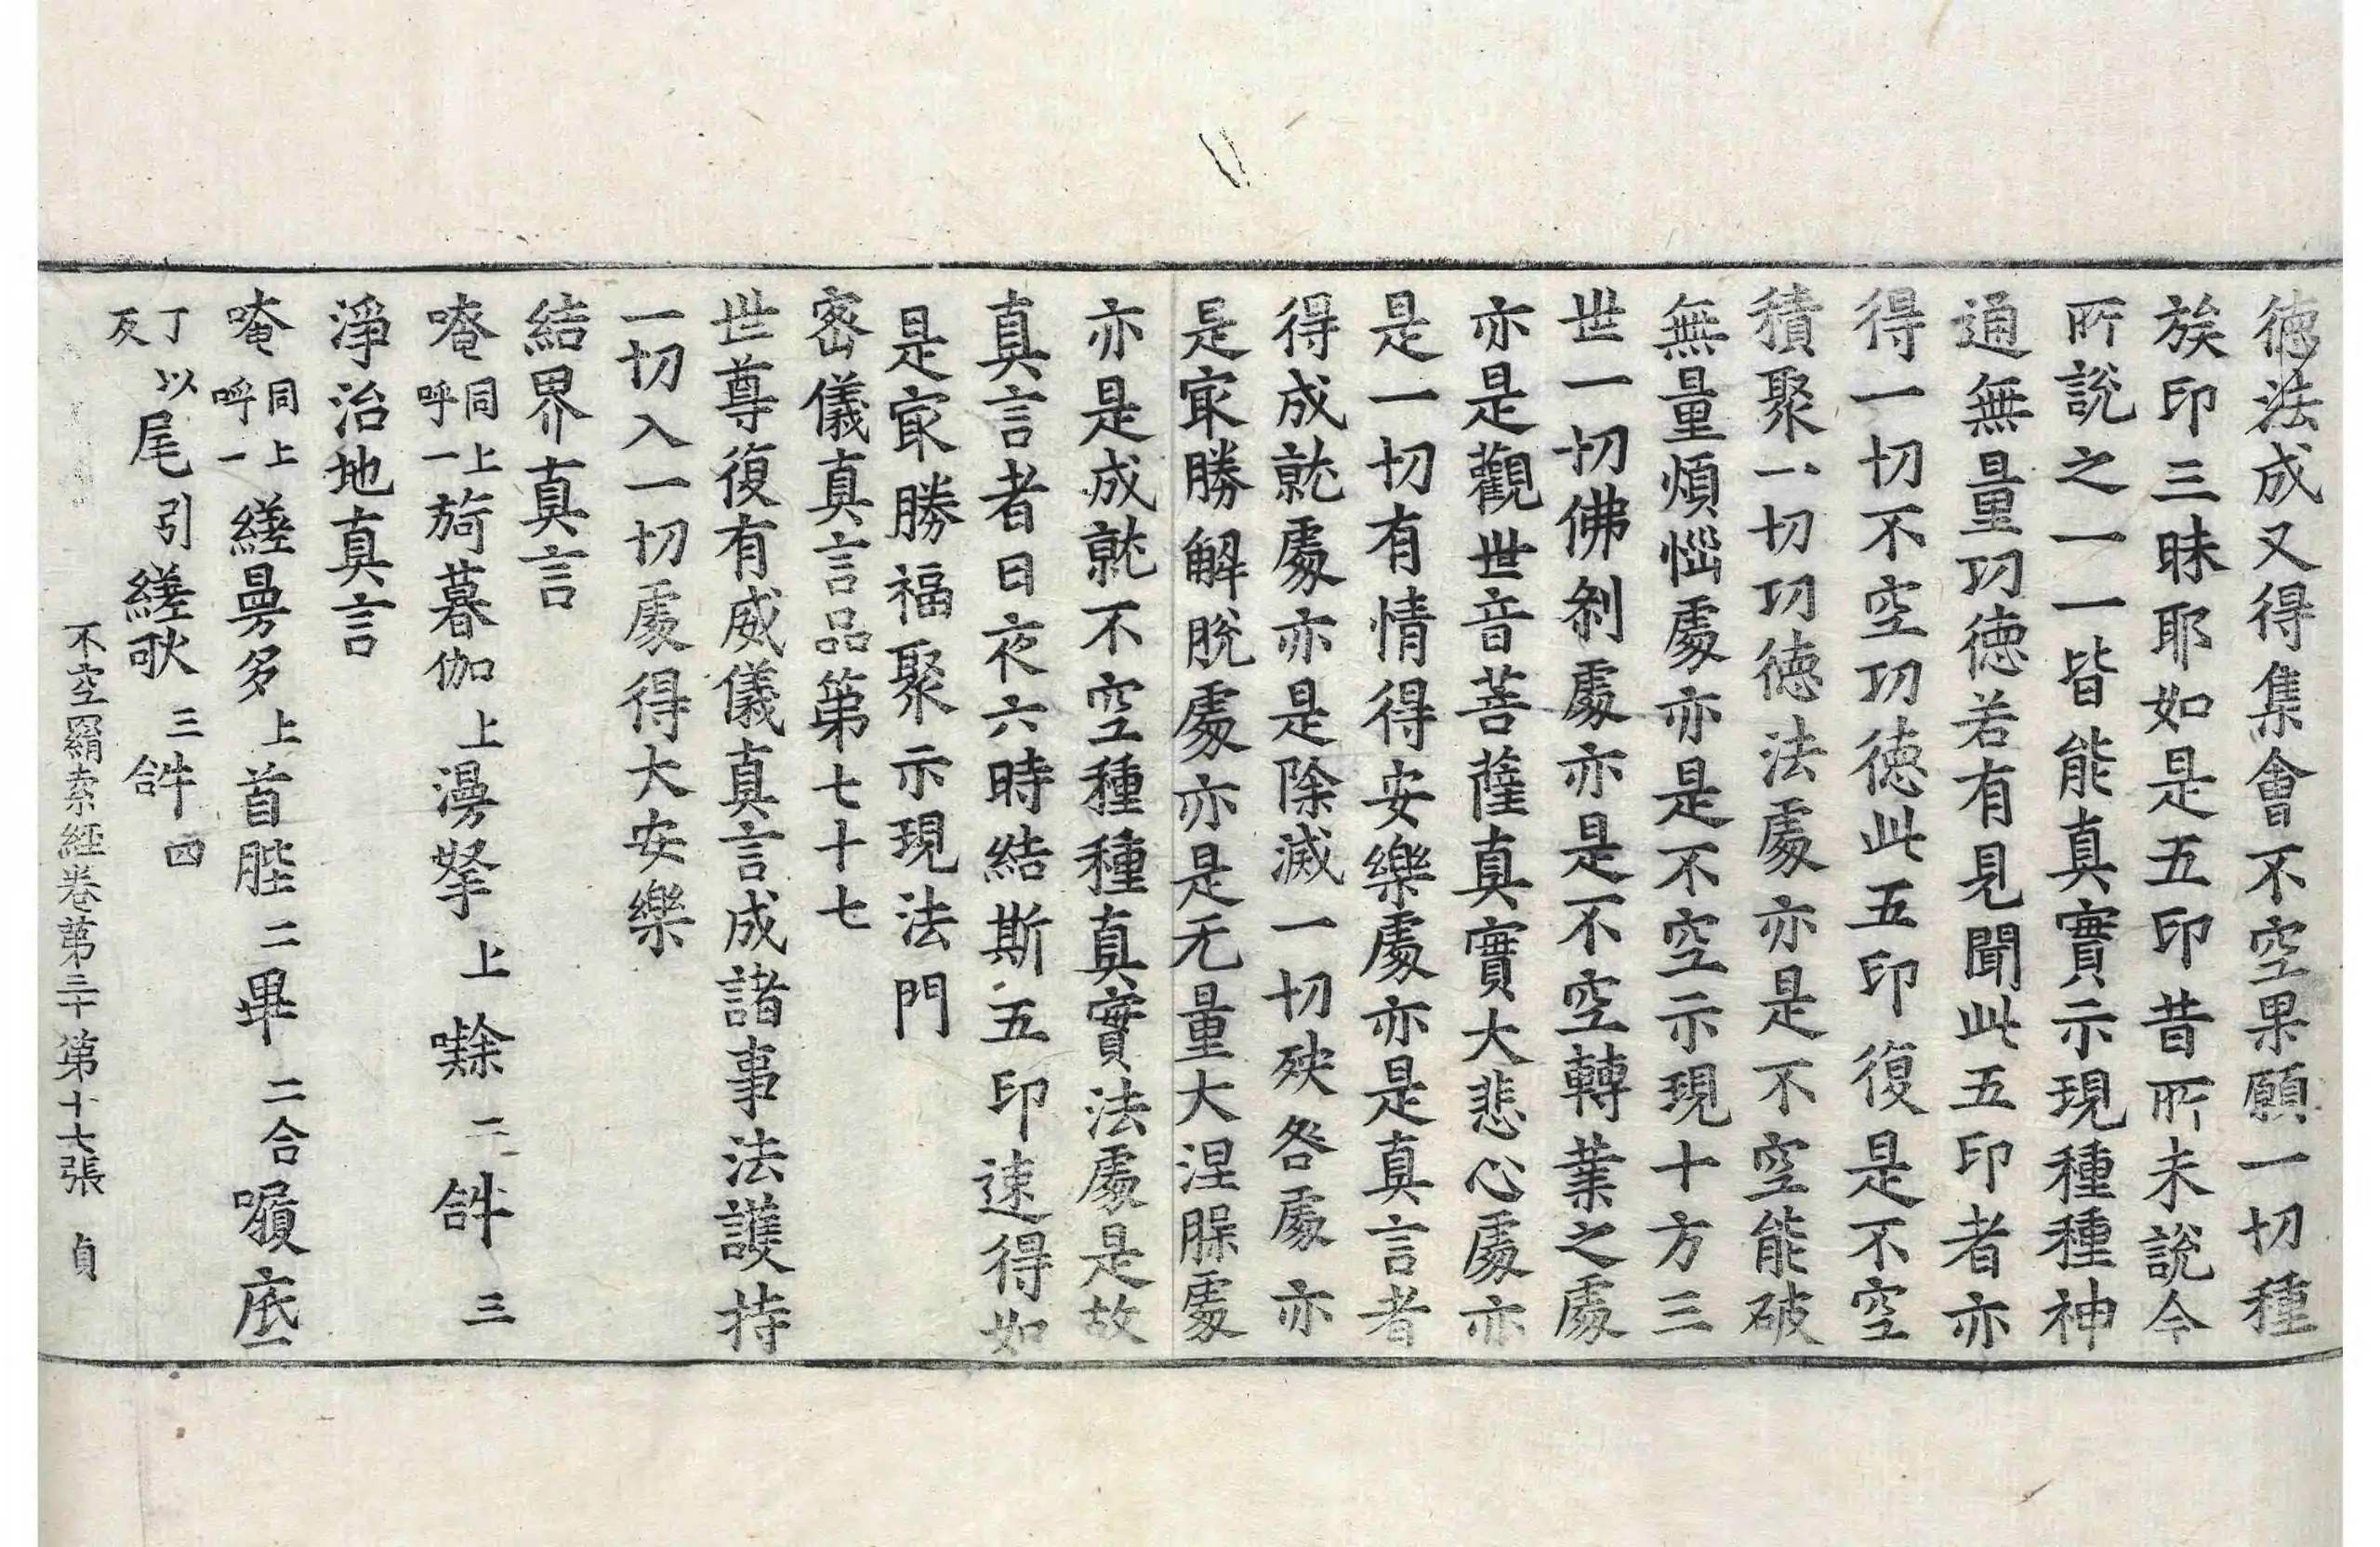 德法成又得集會不空果願一切種
族印三昧耶如是五印昔所未說今
所說之一一皆能真實示現種種神
通無量功德若有見聞此五印者亦
得一切不空功德此五印復是不空
積聚一切功德法處亦是不空能破
無量煩惱處亦是不空示現十方三
世一切佛剎處亦是不空轉業之處
亦是觀世音菩薩真實大悲心處亦
是一切有情得安樂處亦是真言者
得成就處亦是除滅一切殃咎處亦
是㝡勝解脫處亦是无量大涅槃處
亦是成就不空種種真實法處是故
真言者日夜六時結斯五印速得如
是㝡勝福聚示現法門
密儀真言品第七十七
世尊復有威儀真言成諸事法護持
一切入一切處得大安樂
結界真言
唵同上呼一旖暮伽上漫拏上㘑二𤙖三
淨治地真言
唵同上呼一縒曼多上首陛二畢二合囇底
丁以反尾引縒㰠三𤙖四
不空羂索經卷第三十 第十七張 貞